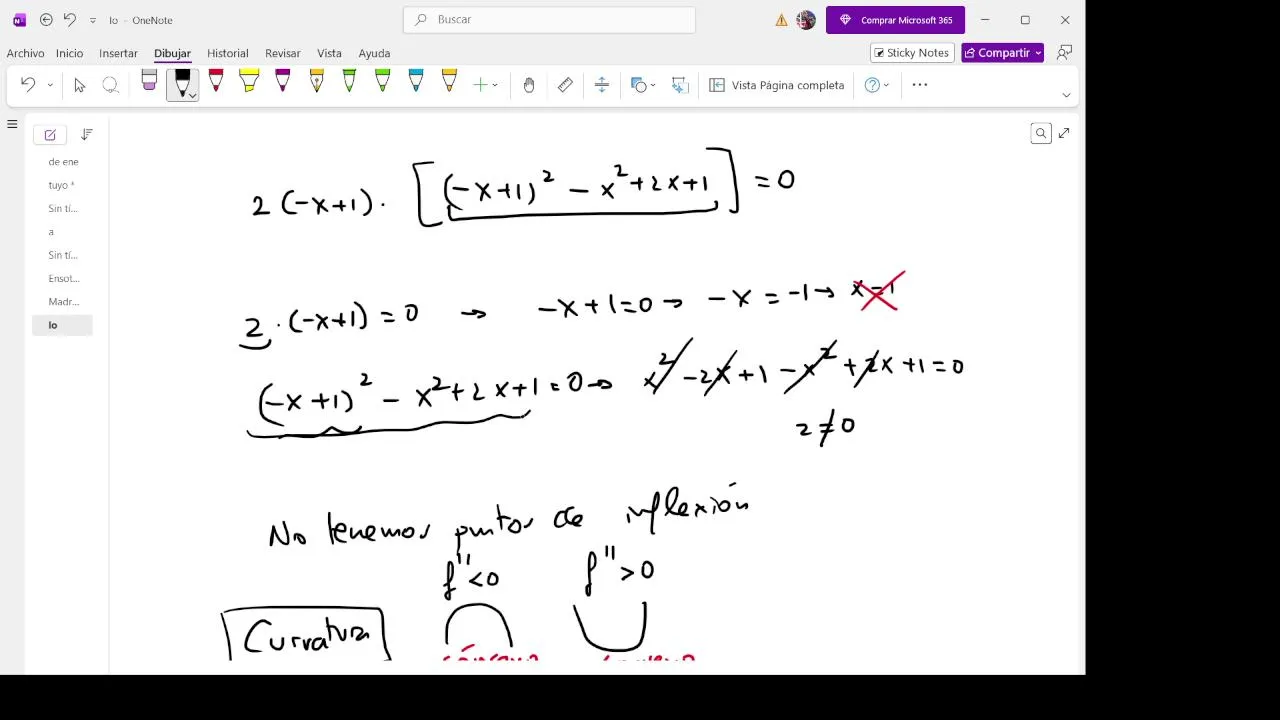 Io - OneNote
Buscar
Comprar Microsoft 365
Archivo Inicio Insertar Dibujar Historial Revisar Vista Ayuda
Sticky Notes Compartir
Vista Página completa
de ene
tuyo *
Sin tí...
a
Sin tí...
Ensot...
Madr...
Io
2 (-x+1) · [(-x+1)² - x² + 2x + 1] = 0
2 · (-x+1) = 0 → -x + 1 = 0 → -x = -1 → x = 1
(-x+1)² - x² + 2x + 1 = 0 → x² - 2x + 1 - x² + 2x + 1 = 0
2 ≠ 0
No tenemos puntos de inflexión
f'' < 0 f'' > 0
Curvatura